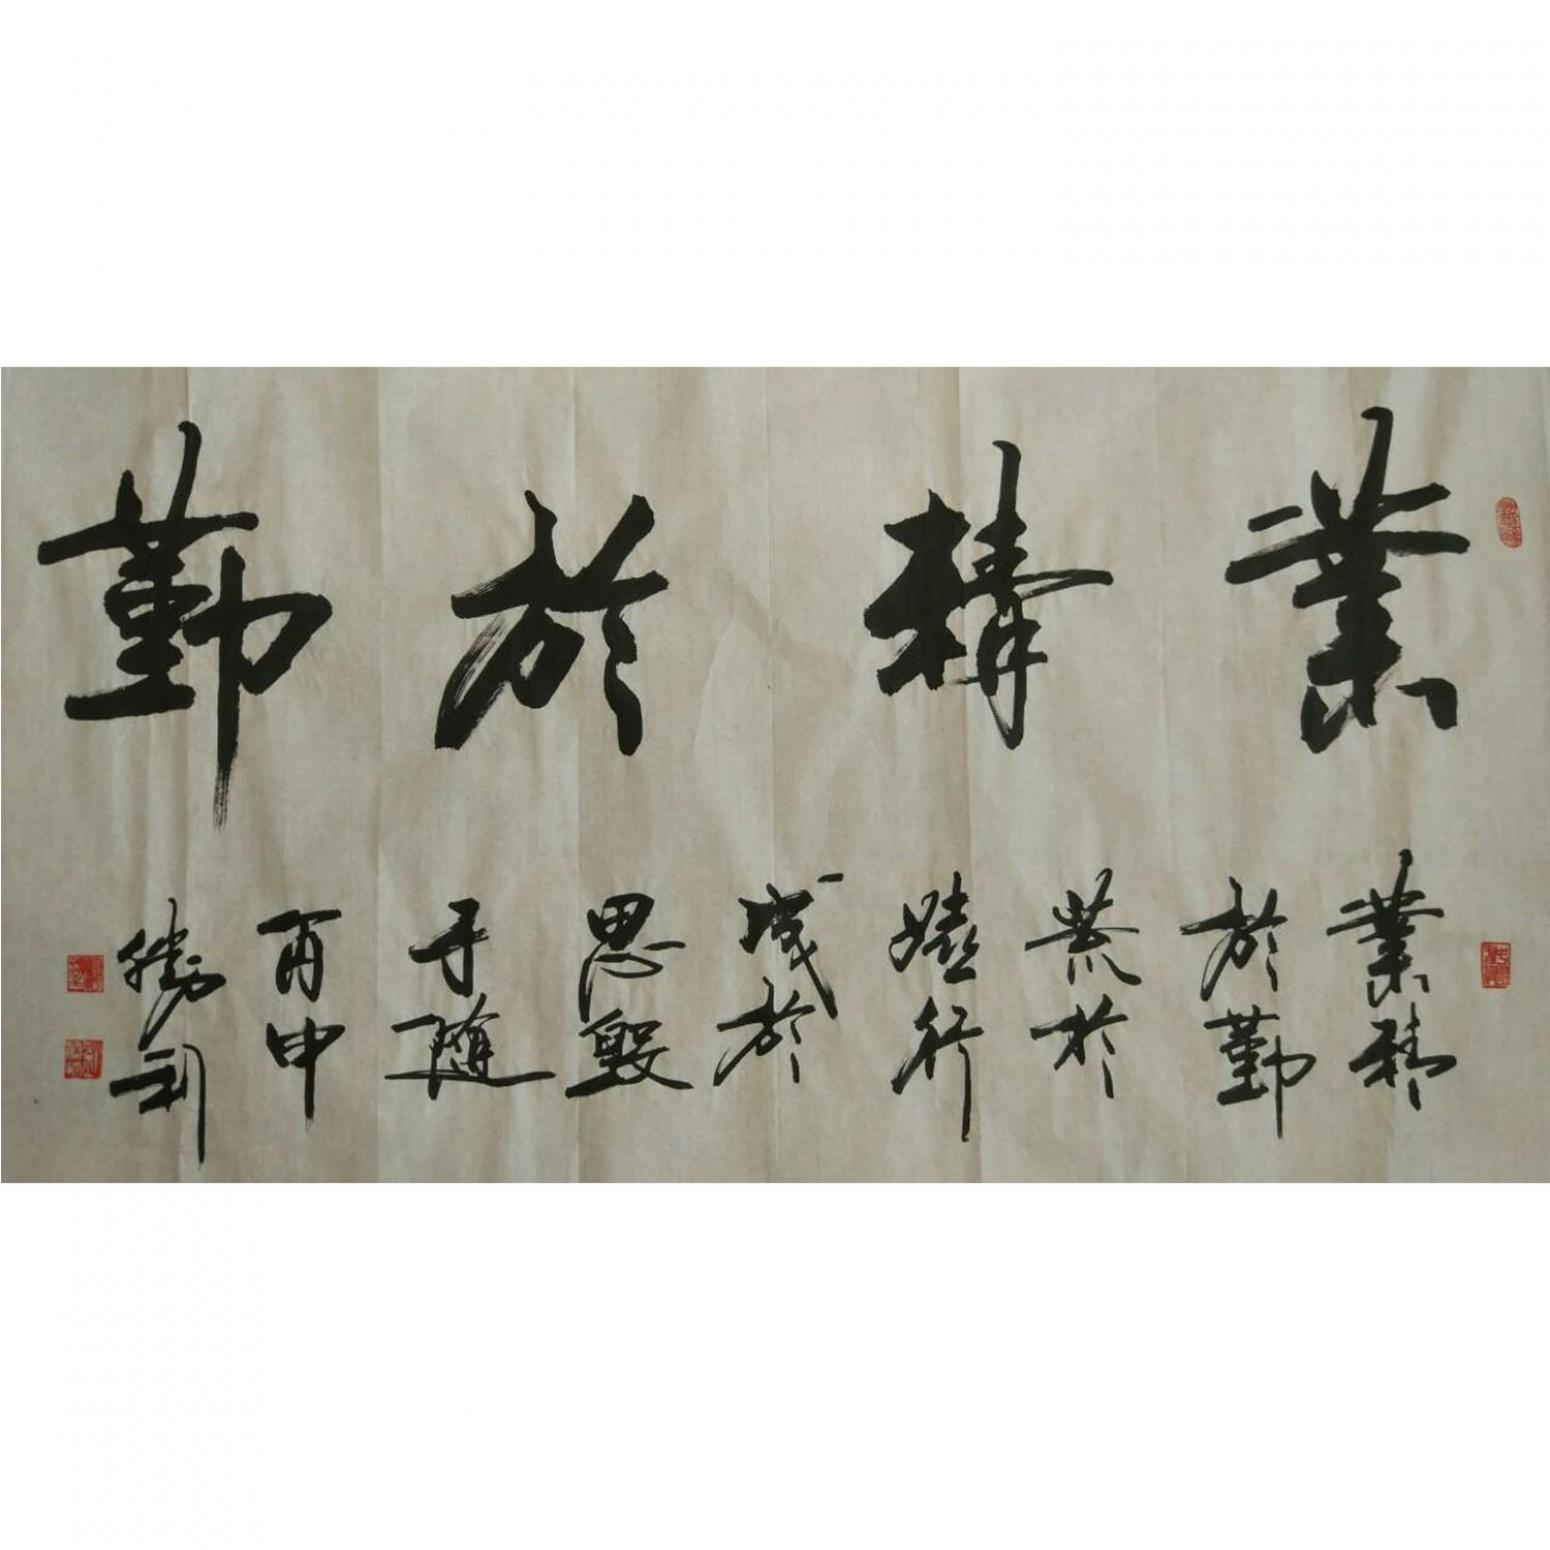 業精於勤
業精
於勤
荒於
嬉行
成於
思毀
于隨
丙申
勝利